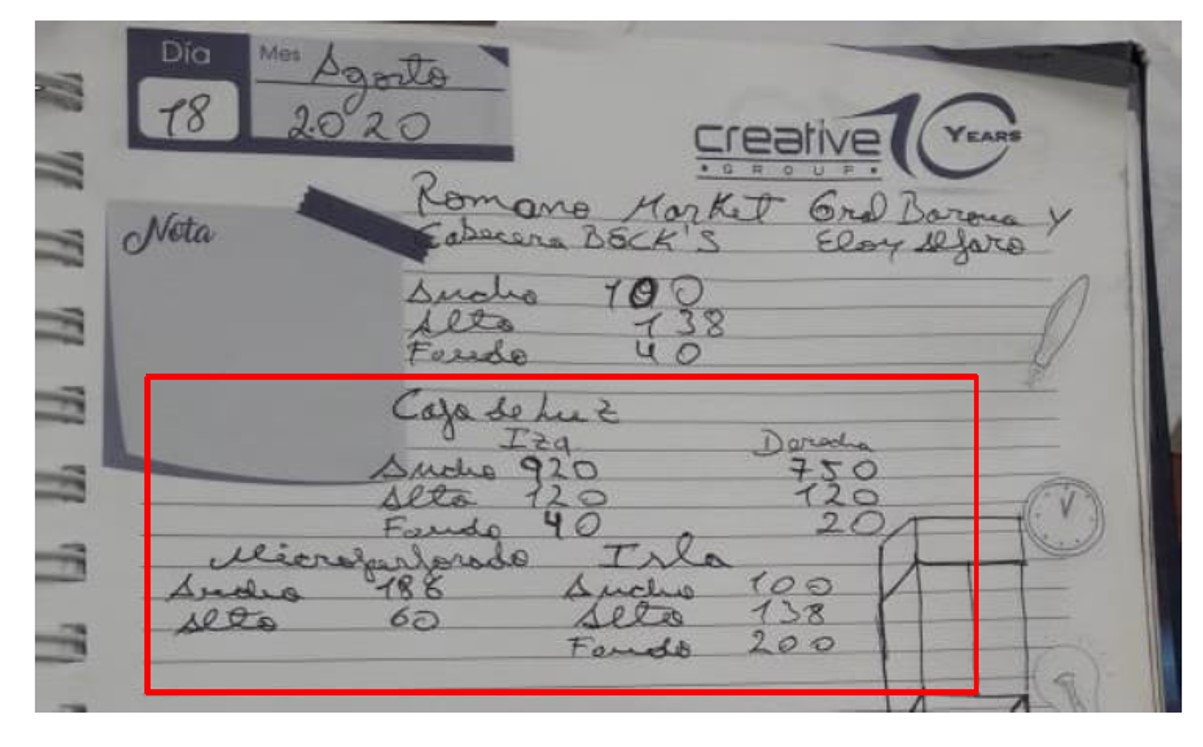 Día Mes Agosto
18 2020
creative 10 YEARS
GROUP
Romano Market Gral Barona y
Nota
Cabecera BECK'S Eloy Alfaro
Ancho 100
Alto 138
Fondo 40
Caja de Luz
Izq Derecha
Ancho 920 750
Alto 120 120
Fondo 40 20
Microperforado Isla
Ancho 186 Ancho 100
Alto 60 Alto 138
Fondo 200